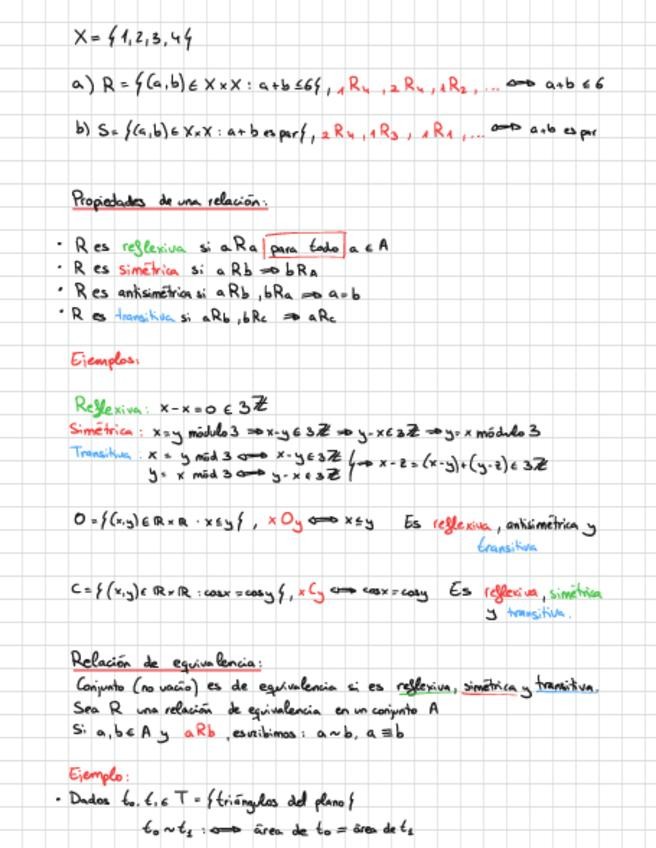 X = {1,2,3,4}
a) R = {(a,b) ∈ X×X : a+b ≤ 6}, 1R4, 2R4, 1R2, ... ⟺ a+b ≤ 6
b) S = {(a,b) ∈ X×X : a+b es par}, 2R4, 1R3, 1R1, ... ⟺ a+b es par
Propiedades de una relación:
· R es reflexiva si aRa para todo a ∈ A
· R es simétrica si aRb ⇒ bRA
· R es antisimétrica si aRb, bRa ⇒ a=b
· R es transitiva si aRb, bRc ⇒ aRc
Ejemplos:
Reflexiva: x-x=0 ∈ 3ℤ
Simétrica: x=y módulo 3 ⇒ x-y ∈ 3ℤ ⇒ y-x ∈ 3ℤ ⇒ y=x módulo 3
Transitiva: x = y mód 3 ⟺ x-y ∈ 3ℤ
y = x mód 3 ⟺ y-x ∈ 3ℤ } ⇒ x-z = (x-y)+(y-z) ∈ 3ℤ
O = {(x,y) ∈ ℝ×ℝ : x≤y}, xOy ⟺ x≤y Es reflexiva, antisimétrica y
transitiva
C = {(x,y) ∈ ℝ×ℝ : cosx = cosy}, xCy ⟺ cosx = cosy Es reflexiva, simétrica
y transitiva.
Relación de equivalencia:
Conjunto (no vacío) es de equivalencia si es reflexiva, simétrica y transitiva.
Sea R una relación de equivalencia en un conjunto A
Si a,b ∈ A y aRb, escribimos: a~b, a≡b
Ejemplo:
· Dados t₀, t₁ ∈ T = {triángulos del plano}
t₀ ~ t₁ : ⟺ área de t₀ = área de t₁